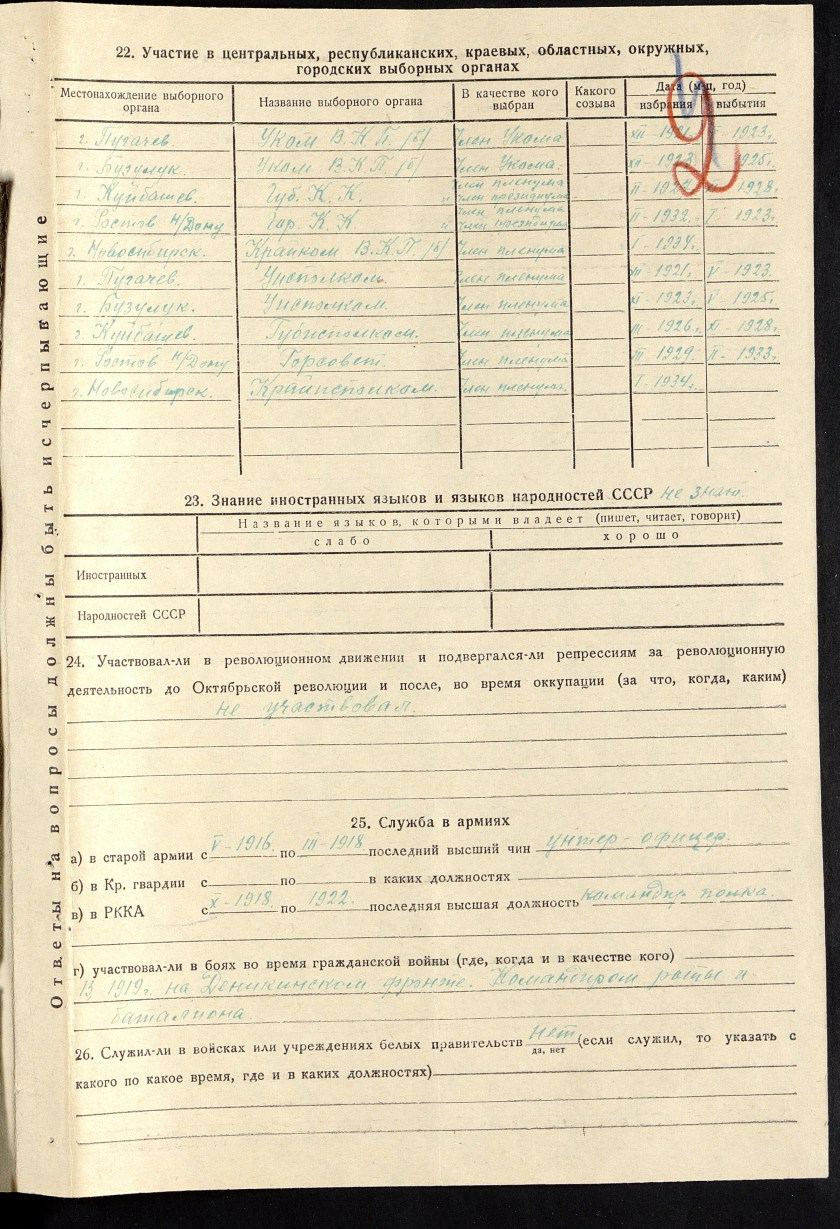 22. Участие в центральных, республиканских, краевых, областных, окружных,
городских выборных органах
Местонахождение выборного органа Название выборного органа В качестве кого выбран Какого созыва Дата (м-ц, год)
избрания выбытия
г. Пугачев. Уком В.К.П. (б) Член Укома 1923г.
г. Бузулук. Уком В.К.П. (б) Член Укома. XII - 1923 1925г.
г. Куйбышев. Губ. К. К. Член пленума 1928г.
член президиума
г. Ростов н/Дону Гор. К. К. Член пленума II - 1932г.
член президиума
г. Новосибирск. Крайком В.К.П. (б) Член пленума I - 1934г.
г. Пугачев. Исполком Член пленума 1921г. V - 1923.
г. Бузулук. Исполком. Член пленума XI - 1923г. V - 1925г.
г. Куйбышев. Губисполком. Член пленума III - 1926г. XI - 1928г.
г. Ростов н/Дону Горсовет. Член пленума III - 1929. II - 1933г.
г. Новосибирск. Крайисполком. Член пленума. I - 1934г.
23. Знание иностранных языков и языков народностей СССР не знаю.
Название языков, которыми владеет (пишет, читает, говорит)
слабо хорошо
Иностранных
Народностей СССР
24. Участвовал-ли в революционном движении и подвергался-ли репрессиям за революционную
деятельность до Октябрьской революции и после, во время оккупации (за что, когда, каким)
не участвовал.
25. Служба в армиях
а) в старой армии с V - 1916. по III - 1918 последний высший чин унтер-офицер.
б) в Кр. гвардии с по в каких должностях
в) в РККА с X - 1918. по 1922. последняя высшая должность командир полка.
г) участвовал-ли в боях во время гражданской войны (где, когда и в качестве кого)
В 1919г. на Деникинском фронте. Командиром роты и
баталиона.
26. Служил-ли в войсках или учреждениях белых правительств нет (если служил, то указать с
да, нет
какого по какое время, где и в каких должностях)
Ответы на вопросы должны быть исчерпывающие